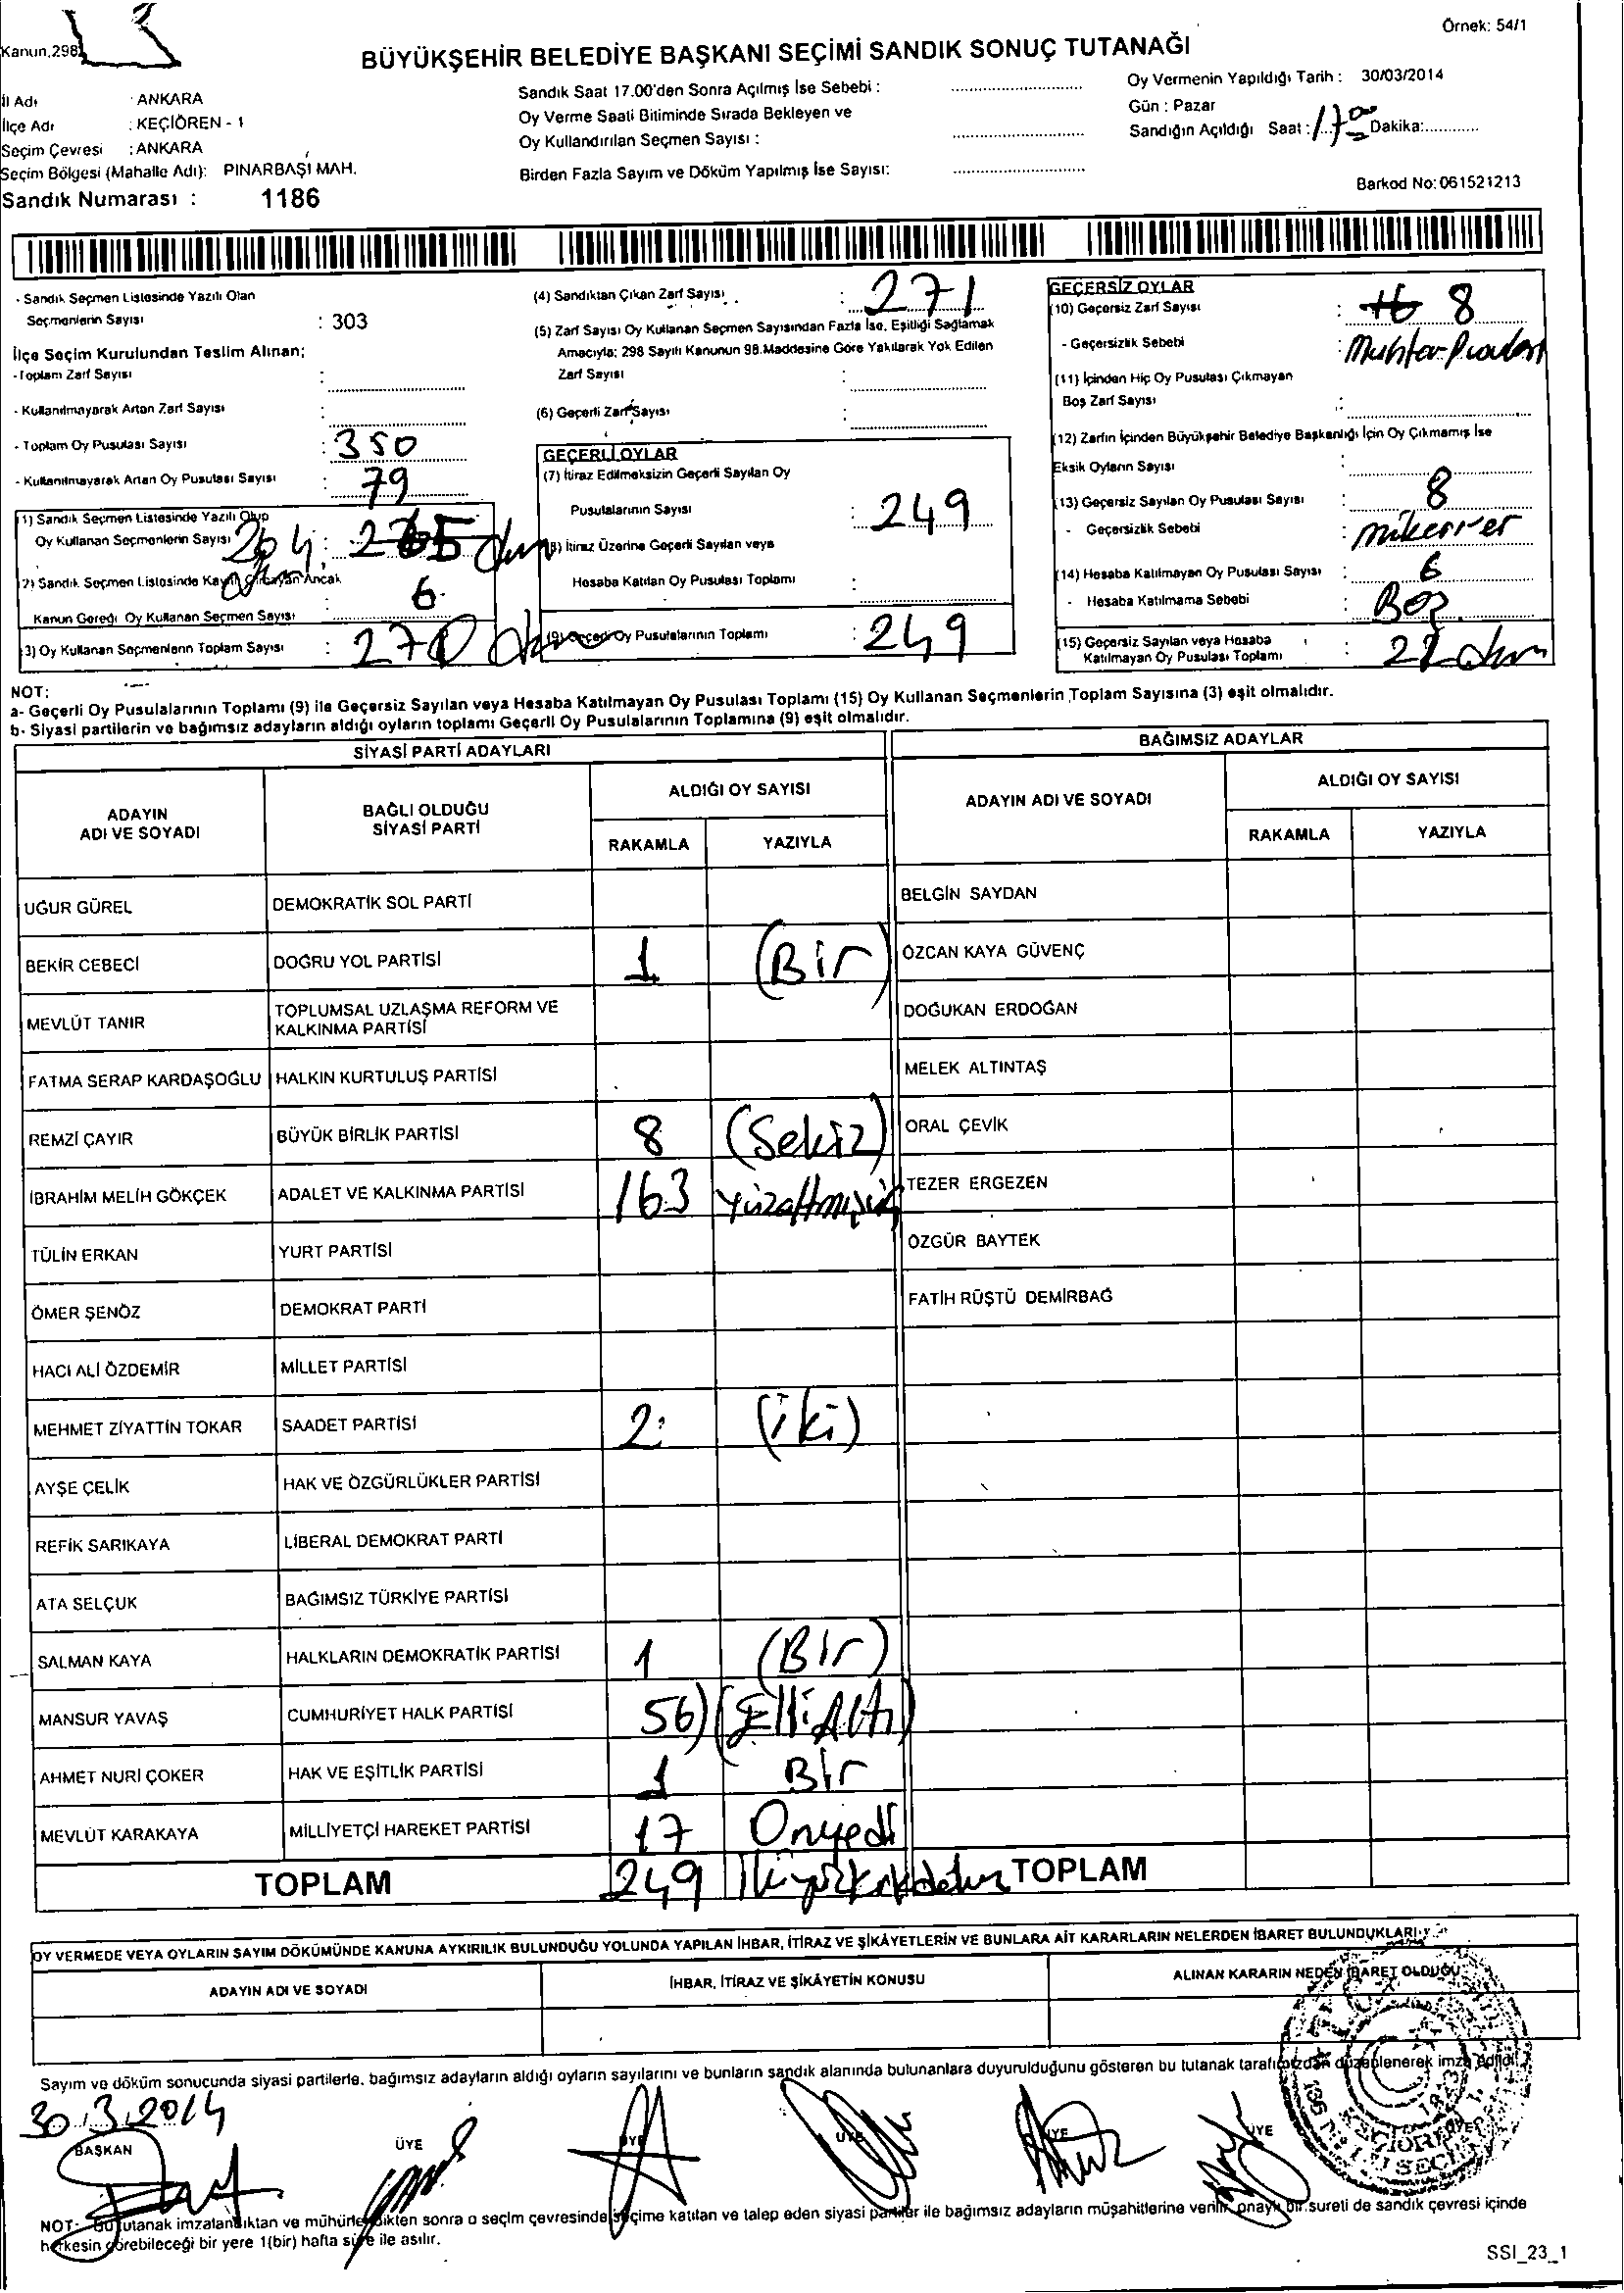 Örnek: 54/1
Kanun.298
BÜYÜKŞEHİR BELEDİYE BAŞKANI SEÇİMİ SANDIK SONUÇ TUTANAĞI
İl Adı : ANKARA
İlçe Adı : KEÇİÖREN - 1
Seçim Çevresi : ANKARA
Seçim Bölgesi (Mahalle Adı): PINARBAŞI MAH.
Sandık Numarası : 1186
Sandık Saat 17.00'den Sonra Açılmış İse Sebebi :
Oy Verme Saati Bitiminde Sırada Bekleyen ve
Oy Kullandırılan Seçmen Sayısı :
Birden Fazla Sayım ve Döküm Yapılmış İse Sayısı:
Oy Vermenin Yapıldığı Tarih : 30/03/2014
Gün : Pazar
Sandığın Açıldığı Saat : 17 00 Dakika:
Barkod No: 061521213
- Sandık Seçmen Listesinde Yazılı Olan
Seçmenlerin Sayısı : 303
İlçe Seçim Kurulundan Teslim Alınan;
- Toplam Zarf Sayısı :
- Kullanılmayarak Artan Zarf Sayısı :
- Toplam Oy Pusulası Sayısı : 350
- Kullanılmayarak Artan Oy Pusulası Sayısı : 79
1) Sandık Seçmen Listesinde Yazılı Olup
Oy Kullanan Seçmenlerin Sayısı 264 : 265
2) Sandık Seçmen Listesinde Kayıtlı Olmayan Ancak
Kanun Gereği Oy Kullanan Seçmen Sayısı : 6
3) Oy Kullanan Seçmenlerin Toplam Sayısı : 270
(4) Sandıktan Çıkan Zarf Sayısı : 271
(5) Zarf Sayısı Oy Kullanan Seçmen Sayısından Fazla İse, Eşitliği Sağlamak
Amacıyla; 298 Sayılı Kanunun 98.Maddesine Göre Yakılarak Yok Edilen
Zarf Sayısı :
(6) Geçerli Zarf Sayısı :
GEÇERLİ OYLAR
(7) İtiraz Edilmeksizin Geçerli Sayılan Oy
Pusulalarının Sayısı : 249
(8) İtiraz Üzerine Geçerli Sayılan veya
Hesaba Katılan Oy Pusulası Toplamı :
(9) Geçerli Oy Pusulalarının Toplamı : 249
GEÇERSİZ OYLAR
(10) Geçersiz Zarf Sayısı : 8
- Geçersizlik Sebebi : Muhtar
(11) İçinden Hiç Oy Pusulası Çıkmayan
Boş Zarf Sayısı :
(12) Zarfın İçinden Büyükşehir Belediye Başkanlığı İçin Oy Çıkmamış İse
Eksik Oyların Sayısı :
(13) Geçersiz Sayılan Oy Pusulası Sayısı : 8
- Geçersizlik Sebebi : mükerrer
(14) Hesaba Katılmayan Oy Pusulası Sayısı : 6
- Hesaba Katılmama Sebebi : Boş
(15) Geçersiz Sayılan veya Hesaba
Katılmayan Oy Pusulası Toplamı : 22
NOT:
a- Geçerli Oy Pusulalarının Toplamı (9) ile Geçersiz Sayılan veya Hesaba Katılmayan Oy Pusulası Toplamı (15) Oy Kullanan Seçmenlerin Toplam Sayısına (3) eşit olmalıdır.
b- Siyasi partilerin ve bağımsız adayların aldığı oyların toplamı Geçerli Oy Pusulalarının Toplamına (9) eşit olmalıdır.
SİYASİ PARTİ ADAYLARI
ADAYIN ADI VE SOYADI
BAĞLI OLDUĞU SİYASİ PARTİ
ALDIĞI OY SAYISI
RAKAMLA YAZIYLA
UĞUR GÜREL DEMOKRATİK SOL PARTİ
BEKİR CEBECİ DOĞRU YOL PARTİSİ 1 (Bir)
MEVLÜT TANIR TOPLUMSAL UZLAŞMA REFORM VE
KALKINMA PARTİSİ
FATMA SERAP KARDAŞOĞLU HALKIN KURTULUŞ PARTİSİ
REMZİ ÇAYIR BÜYÜK BİRLİK PARTİSİ 8 (Sekiz)
İBRAHİM MELİH GÖKÇEK ADALET VE KALKINMA PARTİSİ 163 yüzaltmışüç
TÜLİN ERKAN YURT PARTİSİ
ÖMER ŞENÖZ DEMOKRAT PARTİ
HACI ALİ ÖZDEMİR MİLLET PARTİSİ
MEHMET ZİYATTİN TOKAR SAADET PARTİSİ 2 (iki)
AYŞE ÇELİK HAK VE ÖZGÜRLÜKLER PARTİSİ
REFİK SARIKAYA LİBERAL DEMOKRAT PARTİ
ATA SELÇUK BAĞIMSIZ TÜRKİYE PARTİSİ
SALMAN KAYA HALKLARIN DEMOKRATİK PARTİSİ 1 (Bir)
MANSUR YAVAŞ CUMHURİYET HALK PARTİSİ 56) (Elli Altı)
AHMET NURİ ÇOKER HAK VE EŞİTLİK PARTİSİ 1 Bir
MEVLÜT KARAKAYA MİLLİYETÇİ HAREKET PARTİSİ 17 Onyedi
TOPLAM 249 İkiyüzkırkdokuz
BAĞIMSIZ ADAYLAR
ADAYIN ADI VE SOYADI
ALDIĞI OY SAYISI
RAKAMLA YAZIYLA
BELGİN SAYDAN
ÖZCAN KAYA GÜVENÇ
DOĞUKAN ERDOĞAN
MELEK ALTINTAŞ
ORAL ÇEVİK
TEZER ERGEZEN
ÖZGÜR BAYTEK
FATİH RÜŞTÜ DEMİRBAĞ
TOPLAM
OY VERMEDE VEYA OYLARIN SAYIM DÖKÜMÜNDE KANUNA AYKIRILIK BULUNDUĞU YOLUNDA YAPILAN İHBAR, İTİRAZ VE ŞİKÂYETLERİN VE BUNLARA AİT KARARLARIN NELERDEN İBARET BULUNDUKLARI
ADAYIN ADI VE SOYADI İHBAR, İTİRAZ VE ŞİKÂYETİN KONUSU ALINAN KARARIN NEDEN İBARET OLDUĞU
Sayım ve döküm sonucunda siyasi partilerle, bağımsız adayların aldığı oyların sayılarını ve bunların sandık alanında bulunanlara duyurulduğunu gösteren bu tutanak tarafımızdan düzenlenerek imza edildi.
30.3.2014
BAŞKAN ÜYE ÜYE ÜYE ÜYE ÜYE ÜYE
NOT- Bu tutanak imzalandıktan ve mühürlendikten sonra o seçim çevresinde seçime katılan ve talep eden siyasi partiler ile bağımsız adayların müşahitlerine verilir, onaylı bir sureti de sandık çevresi içinde
herkesin görebileceği bir yere 1(bir) hafta süre ile asılır.
SSI_23_1